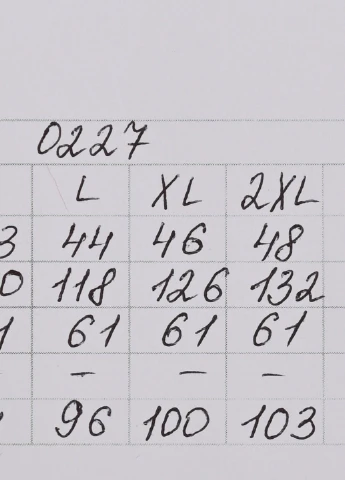 0227
L XL 2XL
3 44 46 48
0 118 126 132
1 61 61 61
- - -
96 100 103